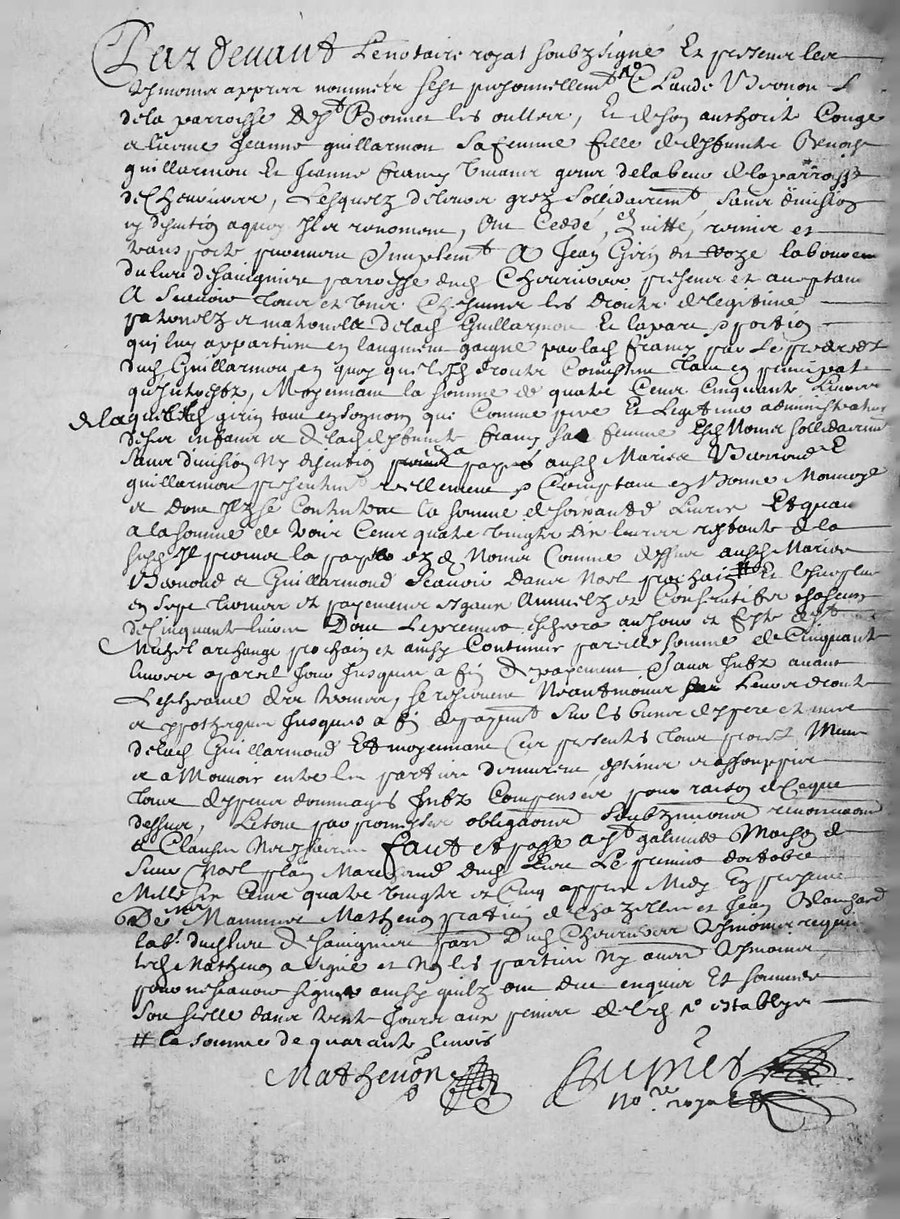 Pardevant Le notaire royal soubzsigné Et presens les
tesmoins appres nommés sest personnellemt Claude Vernon
de la parroisse de St Bonnet les oulles, Et de son authorité Congé
et licence Jeanne guillarmon sa femme fille de deffuncte Benoist
guillarmon Et Jeanne francy de la parroisse
de Chevrieres, Lesquelz de leur grez Sollidairemt sans division
ny discution a quoy Ilz renoncent, Ont Ceddé, quitté, remis et
transporté purement simplemt A Jean Girin dit laboureur
du lieu de parroisse dud Chevrieres present et acceptant
A Scavoir tous et uns Chescuns les droits de legitime
paternelz et maternelz de lad Guillarmon Et la part portion
qui luy appartient en laugment gaigné par lad francy par Le predeces
dud Guillarmon en quoy que lesd droits Consistent tant en principal
quinterestz, Moyennant la somme de quatre Cens Cinquante Livres
de laquelle led girin tant en son nom que Comme pere Et Legitime administrateur
de ses enfans et de lad deffuncte francy sa femme Et Nom sollidairemt
sans division Ny discution a payé ausd Mariés Vernond E
guillarmon presentement reellement Comptant en bonne Monnoye
et dont Ilz se Contentent la somme de soixante Livres Et quant
a la somme de trois Cens quatre vingts dix livres restante de la
susd Il promet la payer Nom Comme dessus ausd Mariés
Vernond et Guillarmond scavoir dans Noel prochain # Et le surplus
en sept termes et payements esgaux Annuelz et Consecutifz chascun
de Cinquante livres Dont Le premier eschera au Jour et feste de St
Michel archange prochain et ainsy Continuer pareille somme de Cinquante
livres a pareil Jour Jusques a fin de payement sans Intz avant
Leschance des termes, se reservent Neantmoins Leurs droits
et ypotheques Jusques a fin de payemt sur les biens des pere et mere
de lad Guillarmond Et moyennant Ces presentes tous proces Meus
et a Mouvoir entre les parties demeurent esteints et assouppis
tous despens dommages Intz Compensés pour raison de Ce que
dessus, Le tout par promesses obligations soubzmissions renonciations
et Clauses Necessaires faict et passé a St galmier Maison de
Sieur Noel plan Marchand dud Lieu Le premier doctobre
Mille six Cens quatre vingts et Cinq appres Midy En presence
De Mre Mammert Mathevon praticien de Chazelles et Jean Blanchard
labr dud lieu de parr dud Chevrieres tesmoins requis
led Mathevon a signé et Non les parties Ny autre tesmoins
pour ne scavoir signer ainsy quilz ont dict enquis Et sommés
Sou scelle dans trente Jours aux peines de led establyes
# la somme de quarante livres
Mathevon
nore royal